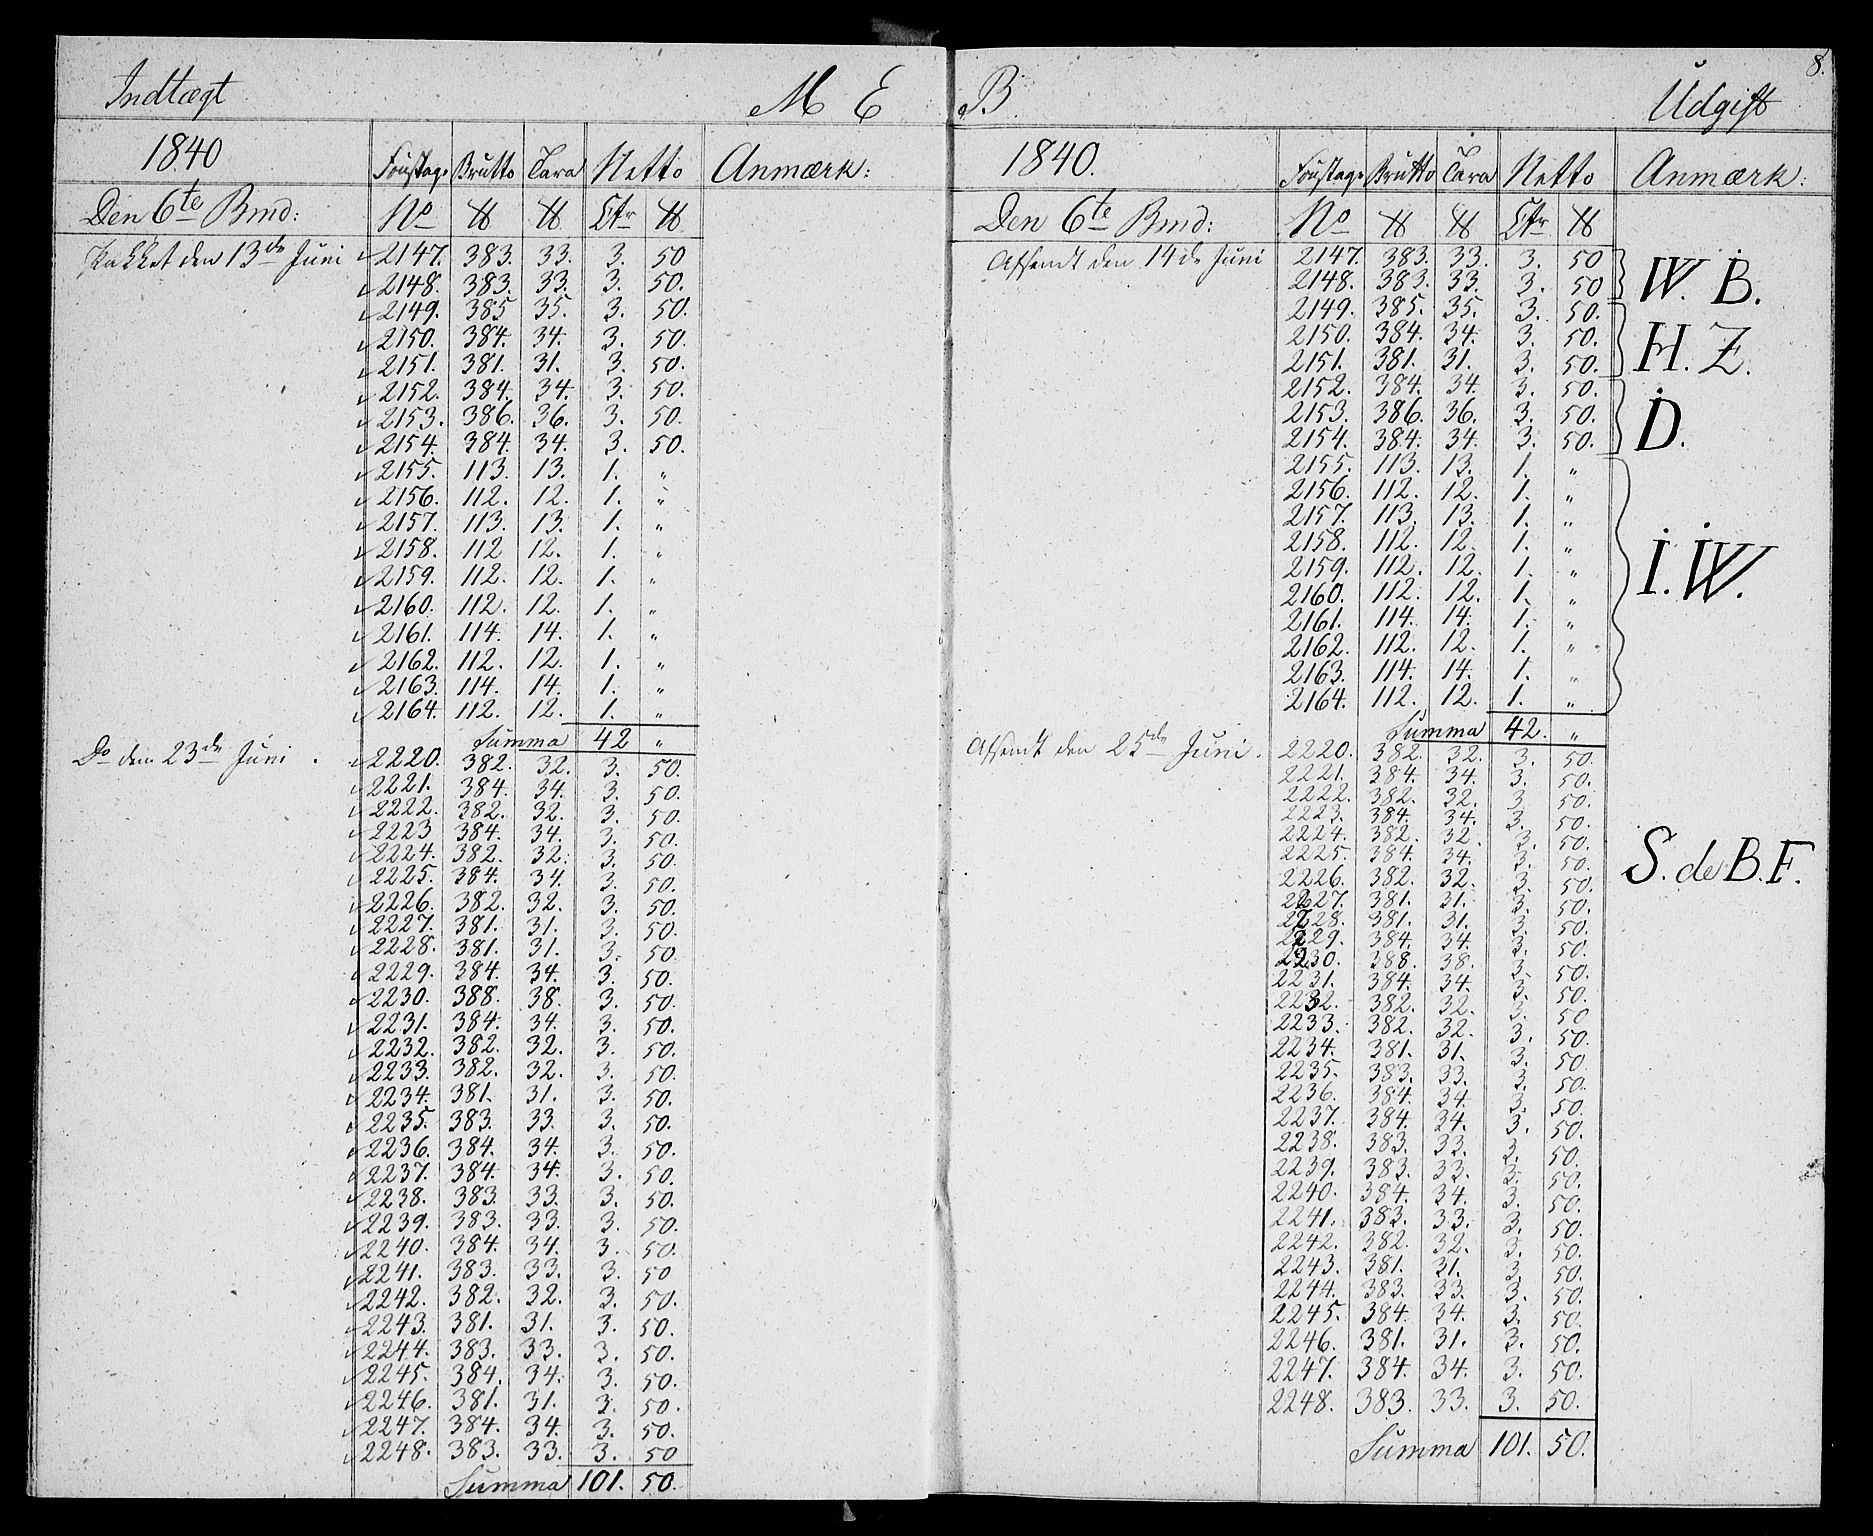 Indtægt M E
1840 Fustage Brutto Tara Netto Anmærk:
Den 6te Bmd: No ℔ ℔ Ctr ℔
Pakket den 13de Juni 2147. 383. 33. 3. 50
2148. 383. 33. 3. 50.
2149. 385 35. 3. 50.
2150. 384. 34. 3. 50.
2151. 381. 31. 3. 50.
2152. 384. 34. 3. 50.
2153. 386. 36. 3. 50.
2154. 384. 34. 3. 50.
2155. 113. 13. 1. "
2156. 112. 12. 1. "
2157. 113. 13. 1. "
2158. 112 12. 1. "
2159. 112. 12. 1. "
2160. 112. 12. 1. "
2161. 114. 14. 1. "
2162. 112. 12. 1. "
2163. 114. 14. 1. "
2164. 112. 12. 1. "
Summa 42 "
Do den 23de Juni. 2220. 382. 32. 3. 50.
2221. 384. 34. 3. 50.
2222. 382. 32. 3. 50.
2223 384. 34. 3. 50.
2224. 382. 32. 3. 50.
2225. 384. 34. 3. 50.
2226. 382. 32. 3. 50.
2227. 381. 31. 3. 50.
2228. 381. 31. 3. 50.
2229. 384. 34. 3. 50.
2230. 388. 38. 3. 50.
2231. 384. 34. 3. 50.
2232. 382. 32. 3. 50.
2233. 382. 32. 3. 50.
2234. 381. 31. 3. 50.
2235. 383. 33. 3. 50.
2236. 384. 34. 3. 50.
2237. 384. 34. 3. 50.
2238. 383. 33. 3. 50.
2239. 383. 33. 3. 50.
2240. 384. 34. 3. 50.
2241. 383. 33. 3. 50
2242. 382. 32. 3. 50.
2243. 381. 31. 3. 50.
2244. 383. 33. 3. 50.
2245. 384. 34. 3. 50.
2246. 381. 31. 3. 50.
2247. 384. 34. 3. 50.
2248. 383. 33. 3. 50
Summa 101. 50.
8.
B. Udgift
1840. Fustage Brutto Tara Netto Anmærk:
Den 6te Bmd: No ℔ ℔ Ctr ℔
Afsendt den 14de Juni 2147. 383. 33. 3. 50
2148. 383. 33. 3. 50 W. B.
2149. 385. 35. 3. 50.
2150. 384. 34. 3. 50. H. Z.
2151. 381. 31. 3. 50.
2152. 384. 34. 3. 50.
2153. 386. 36. 3. 50. D.
2154. 384. 34. 3. 50.
2155. 113. 13. 1. "
2156. 112. 12. 1. "
2157. 113. 13. 1. "
2158. 112. 12. 1. "
2159. 112. 12. 1. " I. W.
2160. 112. 12. 1. "
2161. 114. 14. 1. "
2162. 112. 12. 1. "
2163. 114. 14. 1. "
2164. 112. 12. 1. "
Summa 42. "
Afsendt den 25de Juni. 2220. 382. 32. 3. 50.
2221. 384. 34. 3. 50.
2222. 382. 32. 3 50.
2223. 384. 34. 3. 50.
2224. 382. 32. 3. 50.
2225. 384. 34. 3. 50. S. de B. F.
2226. 382. 32. 3. 50.
2227. 381. 31. 3. 50.
2228. 381. 31. 3. 50.
2229. 384. 34. 3. 50.
2230. 388. 38. 3. 50.
2231. 384. 34. 3. 50.
2232. 382. 32. 3. 50
2233. 382. 32. 3. 50.
2234. 381. 31. 3. 50.
2235. 383. 33. 3. 50.
2236. 384. 34. 3. 50.
2237. 384. 34. 3. 50.
2238. 383. 33. 3. 50.
2239. 383. 33. 3. 50.
2240. 384. 34. 3. 50.
2241. 383. 33. 3. 50.
2242. 382. 32. 3. 50.
2243. 381. 31. 3. 50.
2244. 383. 33. 3. 50.
2245. 384. 34. 3. 50.
2246. 381. 31. 3. 50.
2247. 384. 34. 3. 50.
2248. 383. 33. 3. 50.
Summa 101. 50.